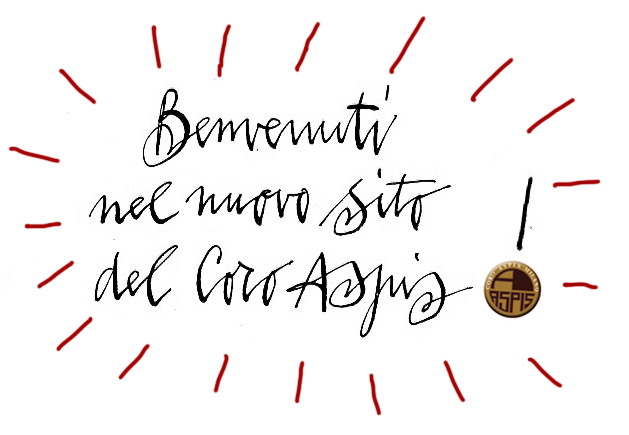 Benvenuti
nel nuovo sito
del Coro Aspis!
CORO ASPIS MILANO
ASPIS